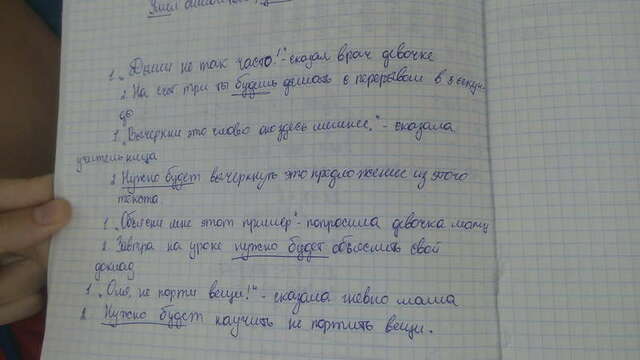 1. „Дыши не так часто!" - сказал врач девочке
2 На счёт три ты будешь дышать с перерывом в 3 секун-
ды
1. „Вычеркни это слово оно здесь лишнее," - сказала
учительница
2 Нужно будет вычеркнуть это предложение из этого
текста.
1. „Объясни мне этот пример" - попросила девочка маму
2 Завтра на уроке нужно будет объяснить свой
доклад
1 „Оля, не порти вещи!" - сказала гневно мама
2. Нужно будет научить не портить вещи.